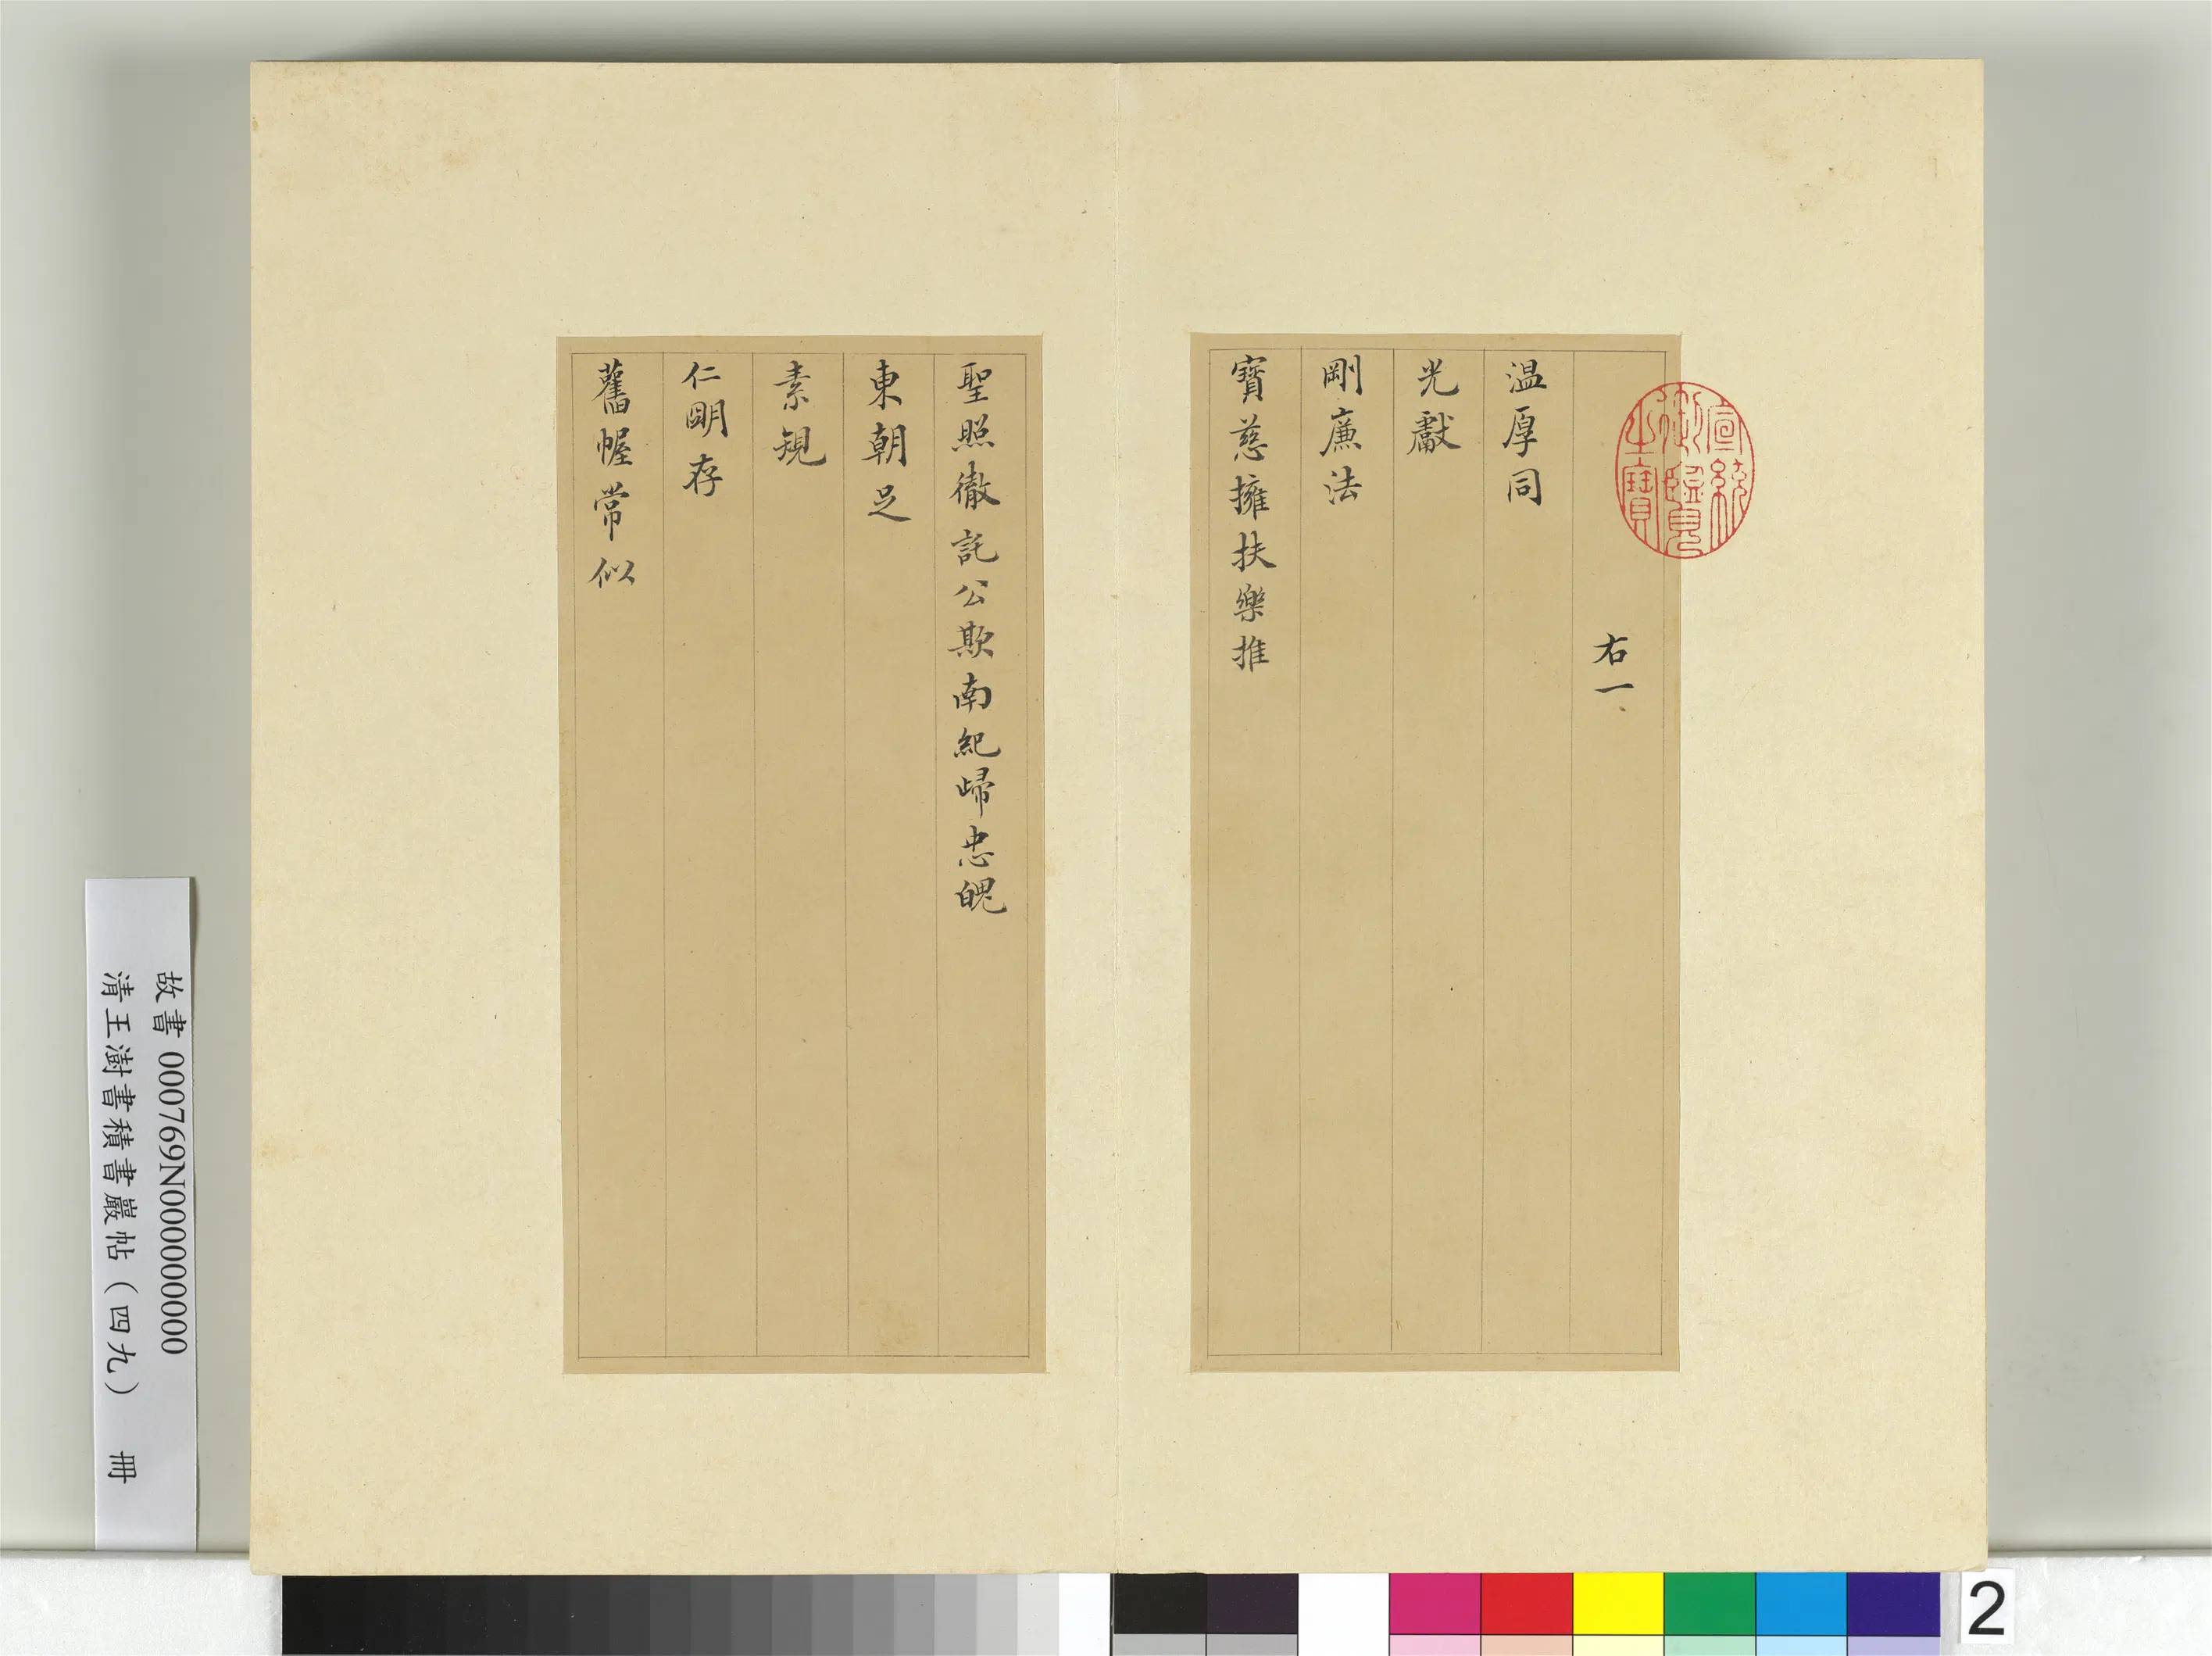 右一
溫厚同
光獻
剛廉法
寶慈擁扶樂推
聖照徹託公欺南紀歸忠魄
東朝足
素規
仁明存
舊幄常似
宣統御覽之寶
故書 000769N000000000
清王澍書積書巖帖（四九） 冊
2